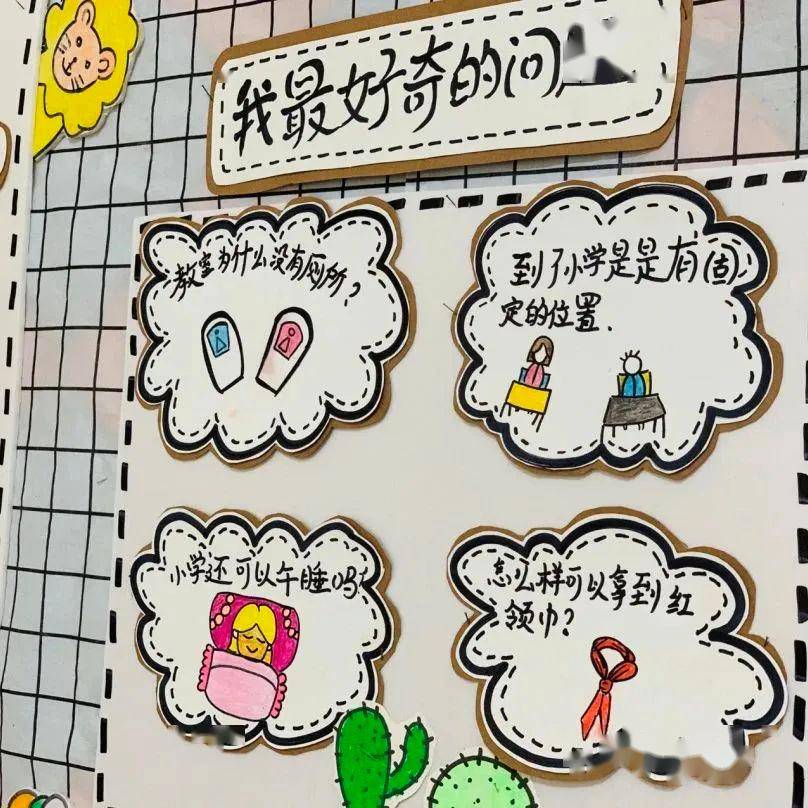 我最好奇的问
教室为什么没有厕所?
到了小学是是有固
定的位置.
小学还可以午睡吗?
怎么样可以拿到红
领巾?